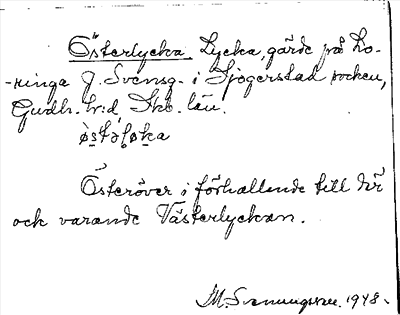 Österlycka. Lycka, gärde på Lo-
-ringa J. Svensg. i Sjögerstad socken,
Gudh. h:d, Skb. län.
Österöver i förhallende till här
och varande Västerlyckan.
M. Svenungsson. 1948.